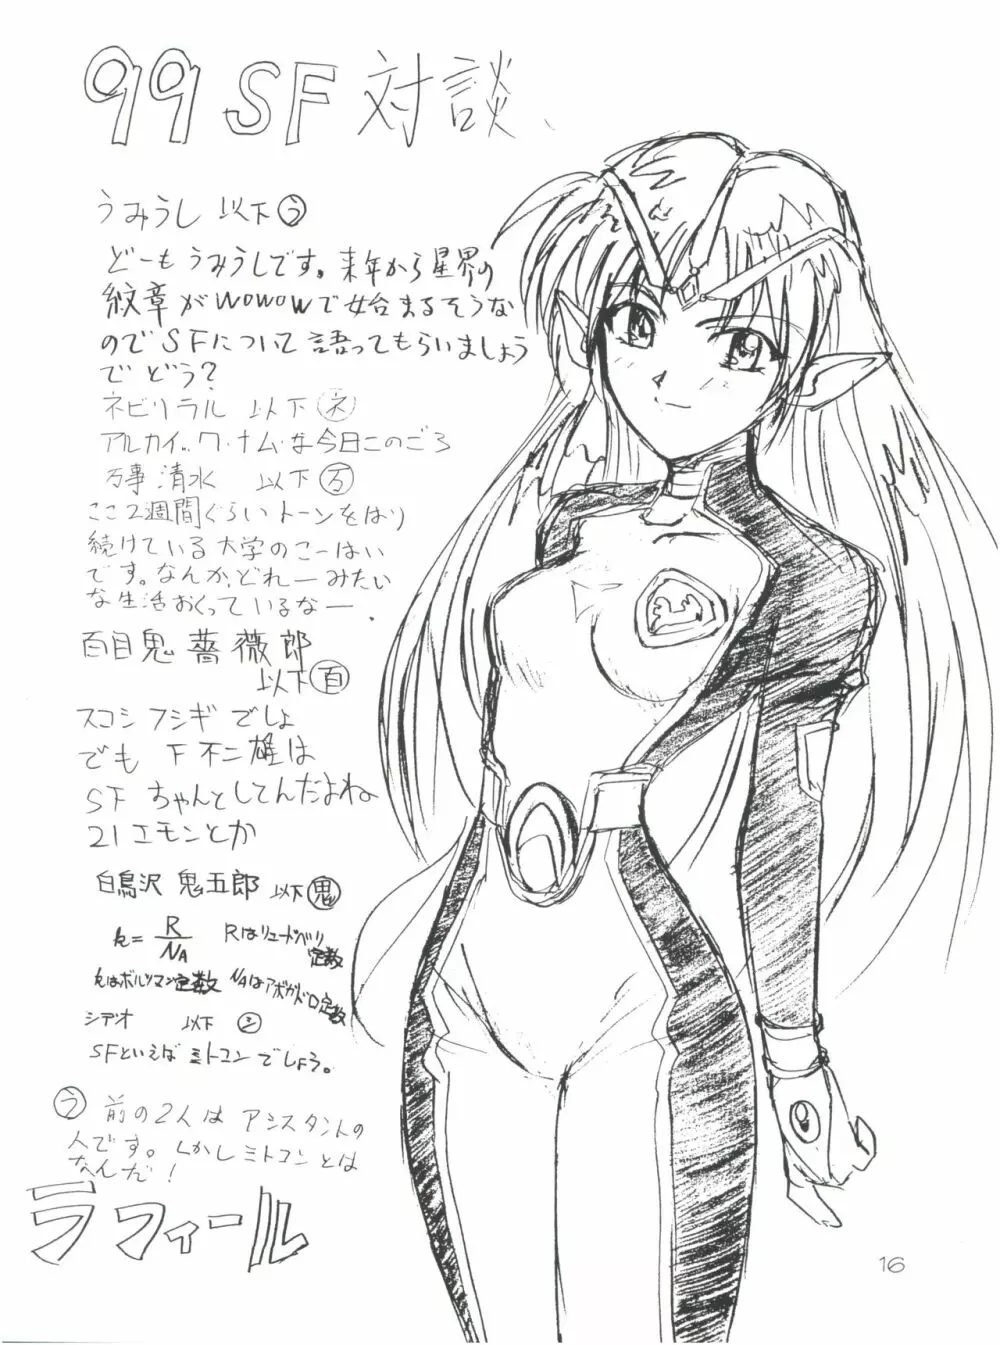 99 SF 対談、
うみうし 以下う
どーもうみうしです。来年から星界の
紋章がWOWOWで始まるそうな
のでSFについて語ってもらいましょう
でどう?
ネビリラル 以下ネ
アルカイック・ナムな今日このごろ
万事清水 以下万
ここ2週間ぐらいトーンをはり
続けている大学のこーはい
です。なんか、どれーみたい
な生活おくっているなー
百目鬼 薔薇郎
以下百
スコシフシギでしょ
でも F不二雄は
SFちゃんとしてんだよね
21エモンとか
白鳥沢 鬼五郎 以下鬼
k=R/NA Rはリュードベリ定数
kはボルツマン定数 NAはアボガドロ定数
シデオ 以下シ
SFといえばミトコンでしょう。
う 前の2人はアシスタントの
人です。しかしミトコンとは
なんだ!
ラフィール
16